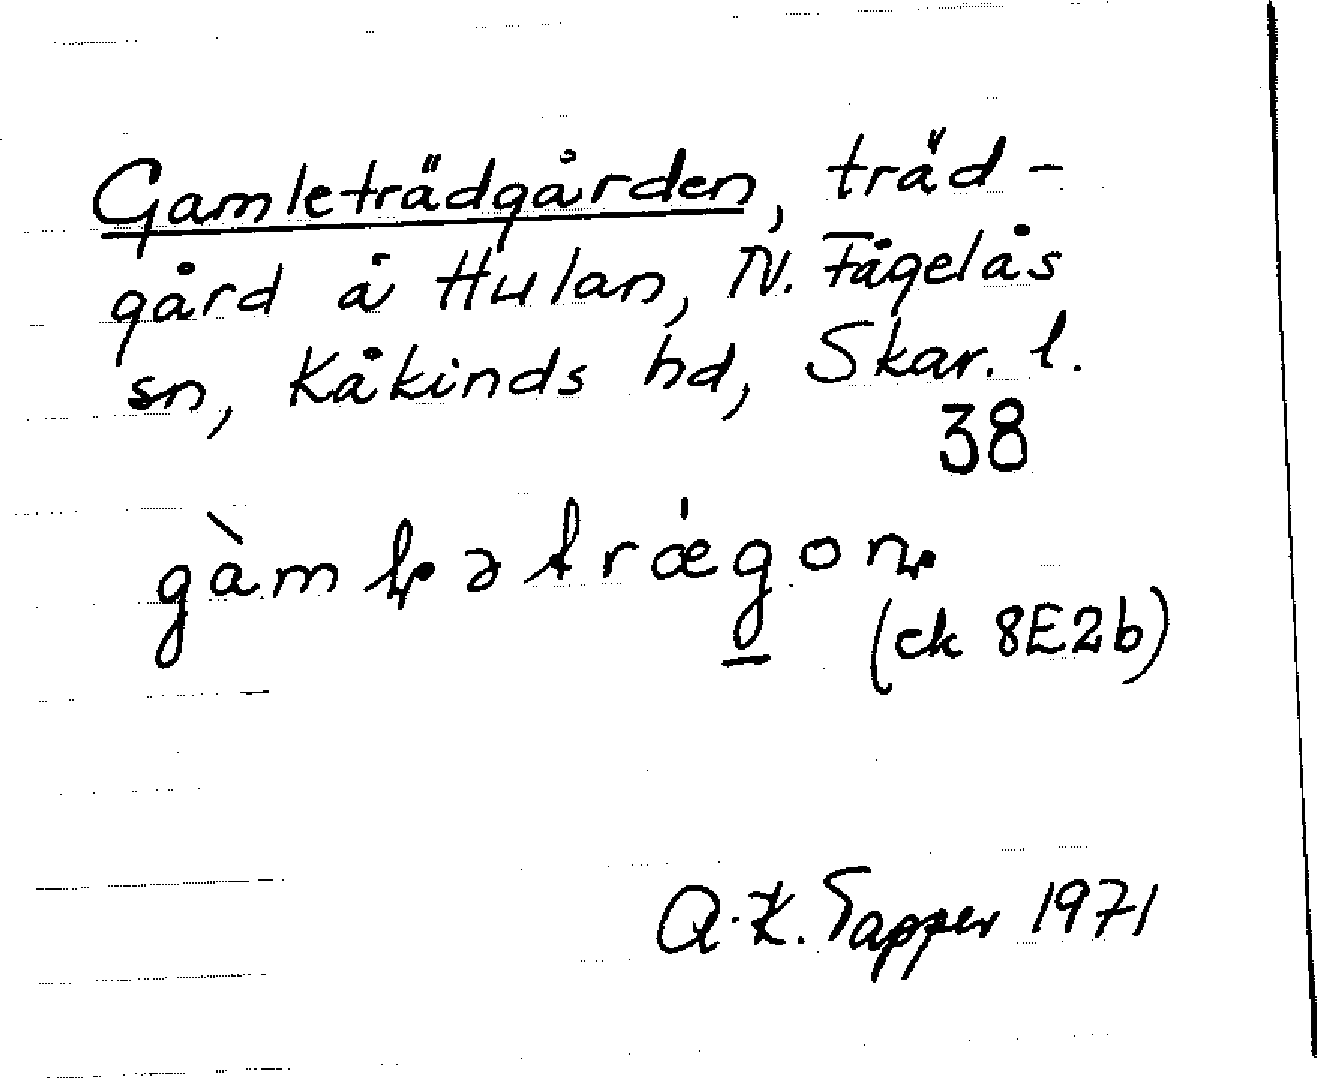 Gamleträdgården, träd-
gård å Hulan, N. Fågelås
sn, Kåkinds hd, Skar. l.
38
gàmḷətrǽgoṇ
(ek 8E2b)
A.K. Tapper 1971